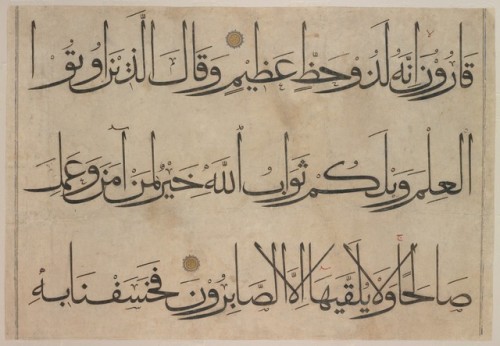 قَارُونُ إِنَّهُ لَذُو حَظٍّ عَظِيمٍ وَقَالَ الَّذِينَ أُوتُوا
الْعِلْمَ وَيْلَكُمْ ثَوَابُ اللَّهِ خَيْرٌ لِمَنْ آمَنَ وَعَمِلَ
صَالِحًا وَلَا يُلَقَّيهَا إِلَّا الصَّابِرُونَ فَخَسَفْنَا بِهِ